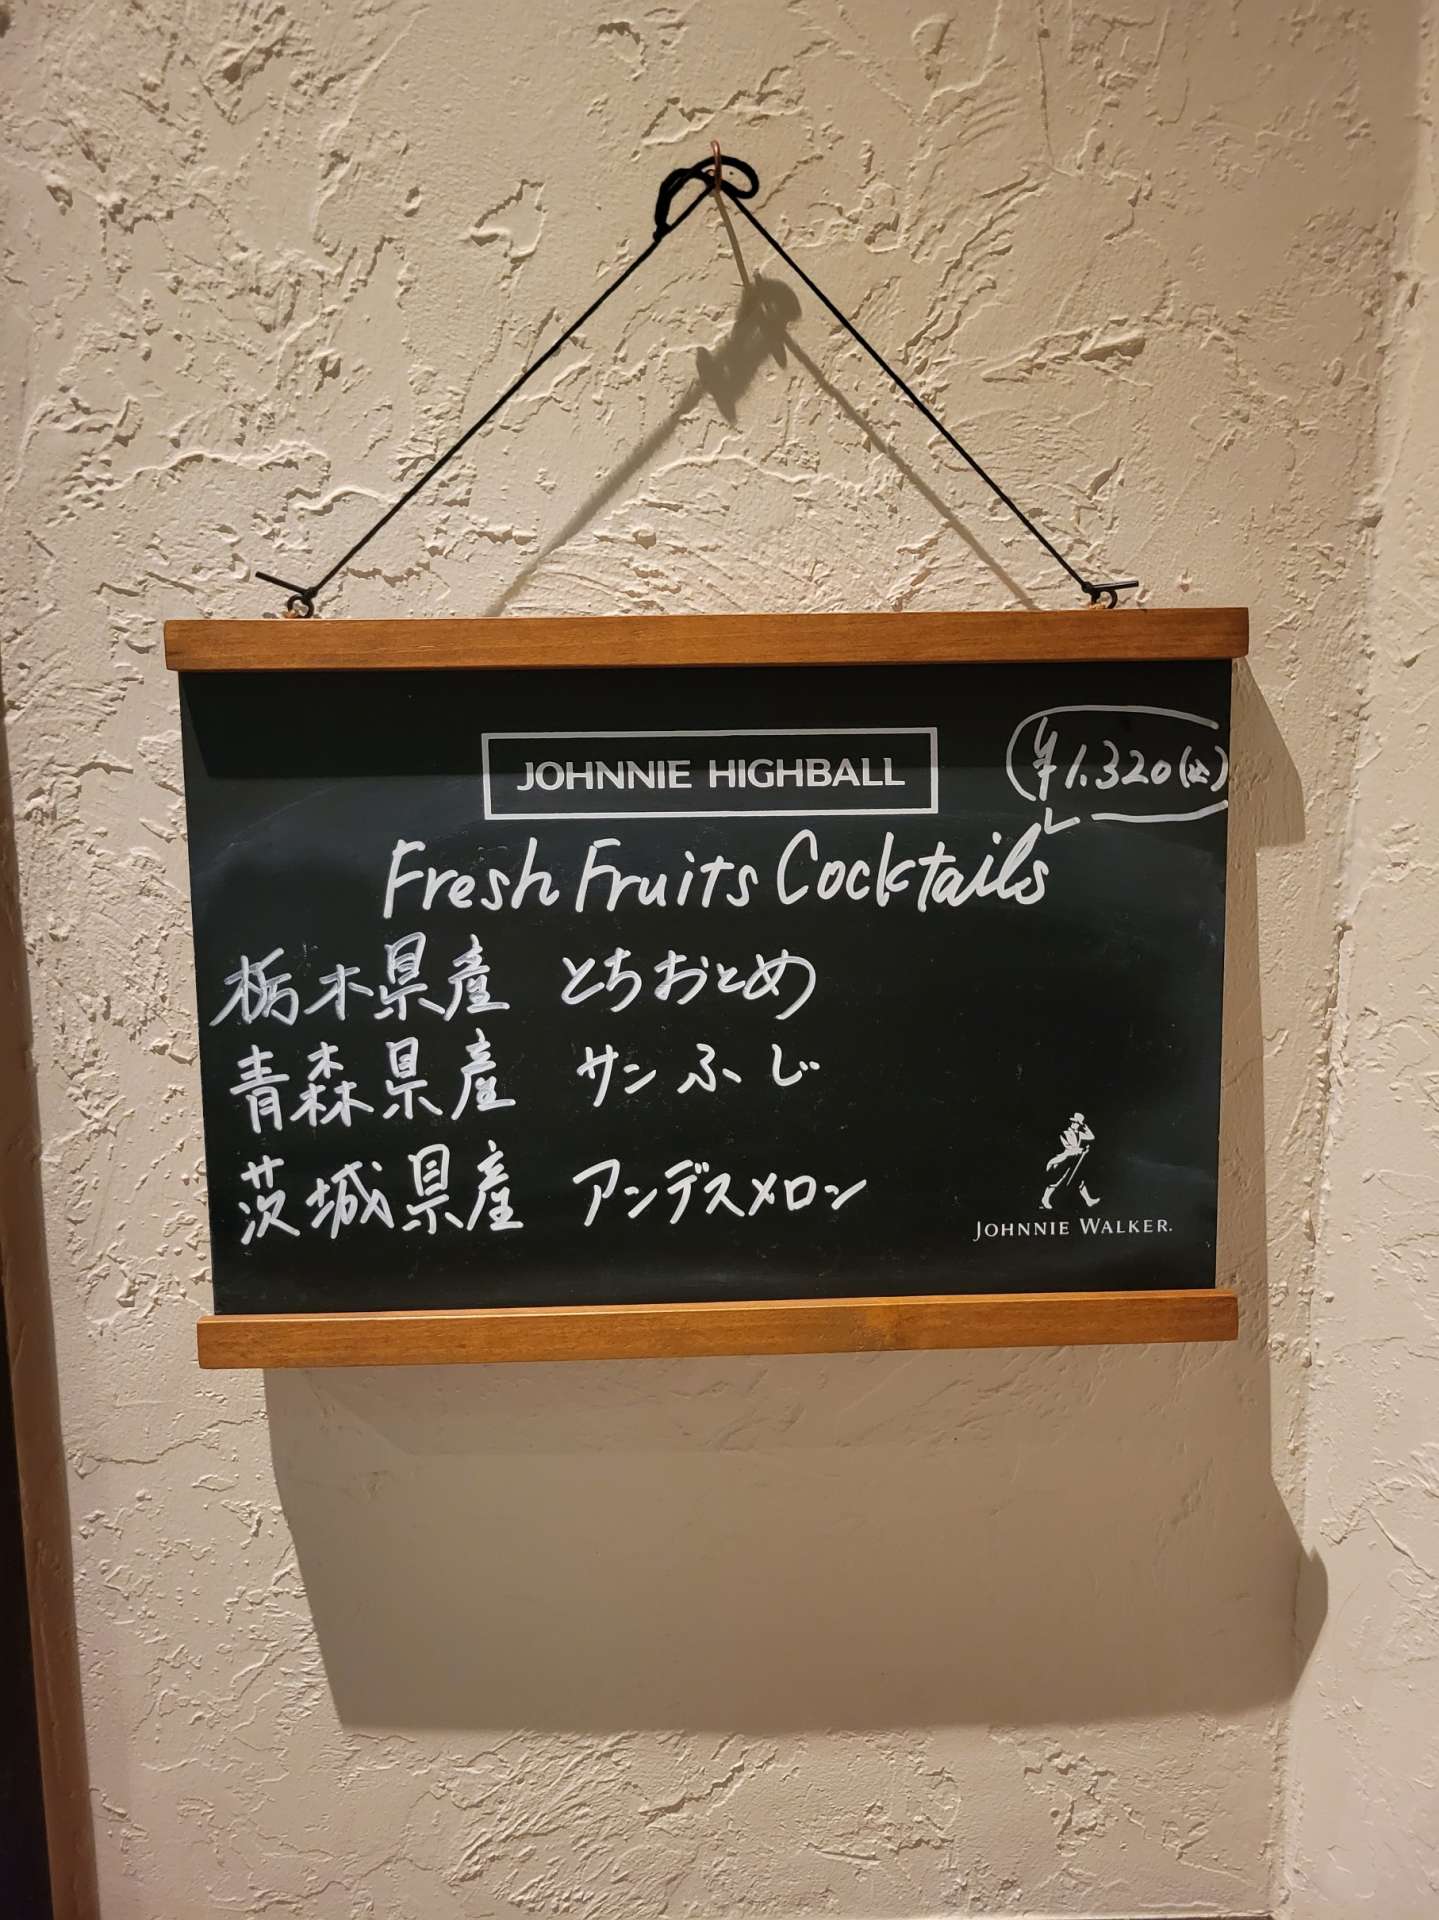 JOHNNIE HIGHBALL
¥1.320(込)
Fresh Fruits Cocktails
栃木県産 とちおとめ
青森県産 サンふじ
茨城県産 アンデスメロン
JOHNNIE WALKER.